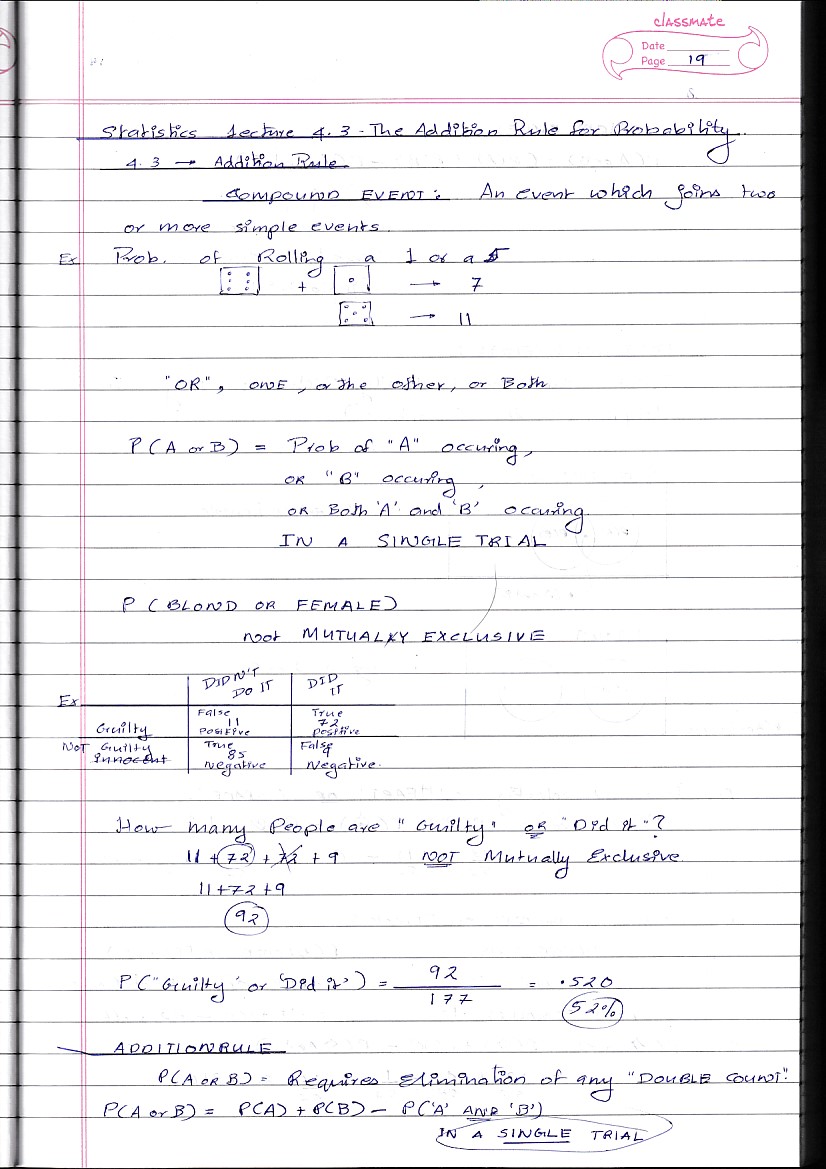 classmate
Date
Page 19
Statistics Lecture 4.3 - The Addition Rule for Probability.
4.3 → Addition Rule
COMPOUND EVENT: An event which joins two
or more simple events.
Ex Prob. of Rolling a 1 or a 5
+ → 7
→ 11
"OR", ONE, or the other, or Both
P(A or B) = Prob of "A" occuring,
OR "B" occuring,
OR Both 'A' and 'B' occuring.
IN A SINGLE TRIAL
P (BLOND OR FEMALE)
Not MUTUALKY EXCLUSIVE
Ex DIDN'T DO IT DID IT
Guilty False 11 Positive True 72 Positive
NOT Guilty Innocent True 85 Negative False 9 Negative.
How many People are "Guilty" OR "Did it"?
11 + 72 + 72 + 9 NOT Mutually Exclusive
11+72+9
92
P("Guilty' or 'Did it') = 92 / 177 = .520
52%
ADDITION RULE
P(A OR B) = Requires Elimination of any "DOUBLE COUNT".
P(A or B) = P(A) + P(B) - P('A' AND 'B')
IN A SINGLE TRIAL